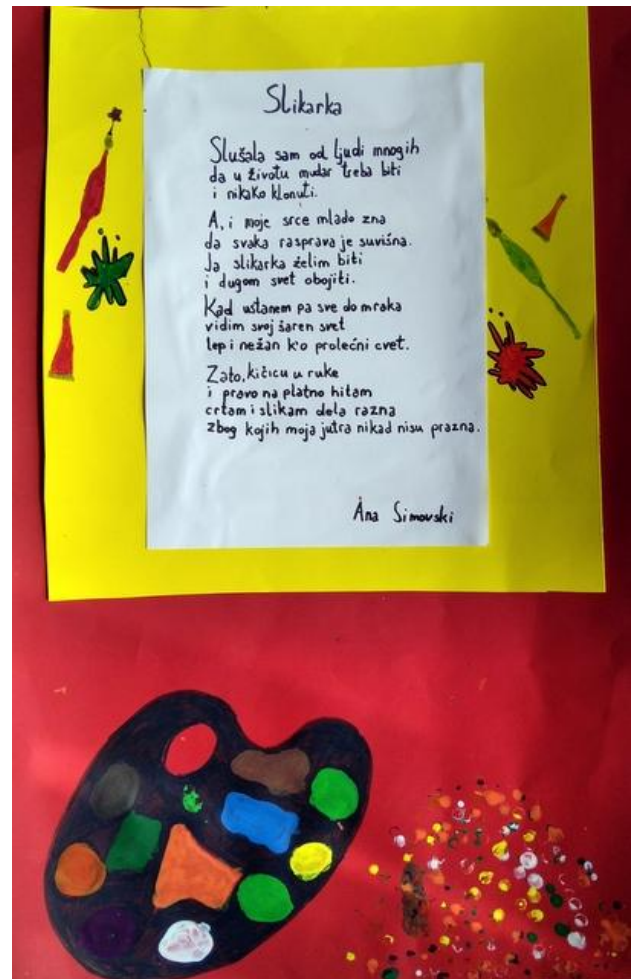 Slikarka
Slušala sam od ljudi mnogih
da u životu mudar treba biti
i nikako klonuti.
A, i moje srce mlado zna
da svaka rasprava je suvišna.
Ja slikarka želim biti
i dugom svet obojiti.
Kad ustanem pa sve do mraka
vidim svoj šaren svet
lep i nežan k'o prolećni cvet.
Zato, kičicu u ruke
i pravo na platno hitam
crtam i slikam dela razna
zbog kojih moja jutra nikad nisu prazna.
Ana Simovski